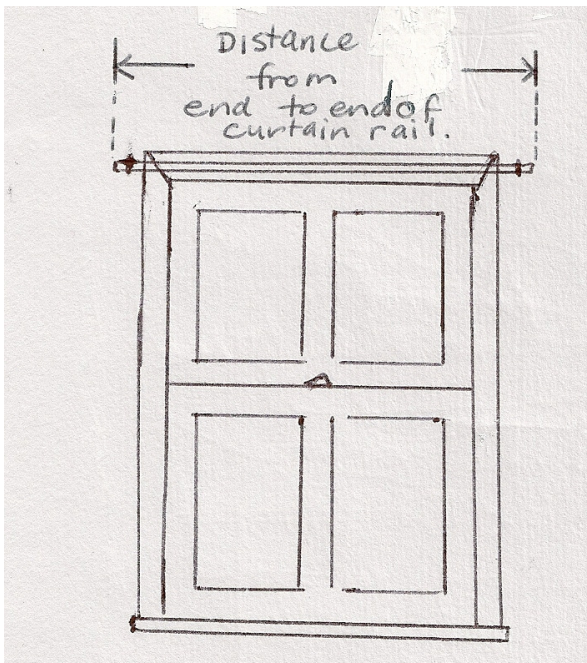 Distance
from
end to end of
curtain rail.